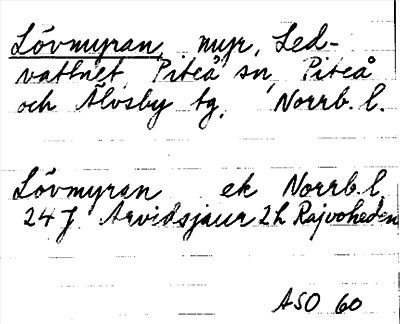 Lövmyran, myr, Led-
vattnet, Piteå sn, Piteå
och Älvsby tg, Norrb. l.
Lövmyran ek Norrb. l
24 J Arvidsjaur 2h Rajvoheden
ASO 60